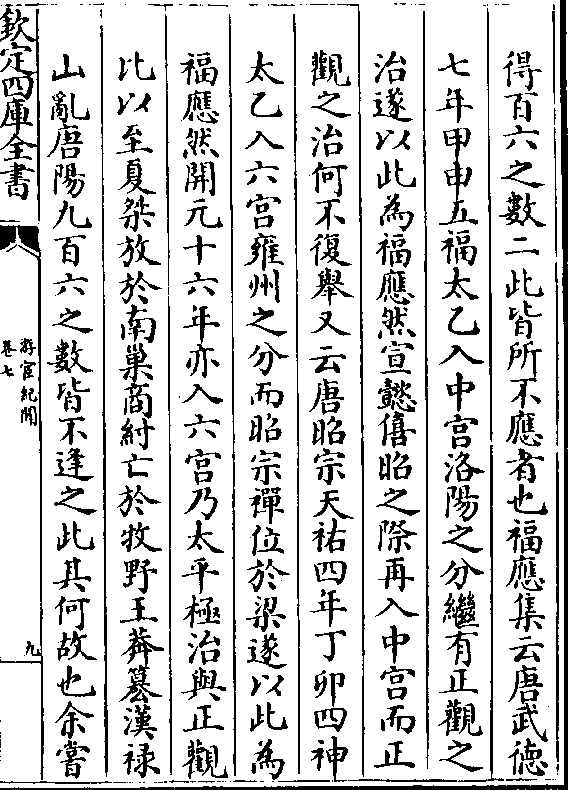 得百六之數二此皆所不應者也福應集云唐武德
七年甲申五福太乙入中宫洛陽之分繼有正觀之
治遂以此為福應然宣懿僖昭之際再入中宫而正
觀之治何不復舉又云唐昭宗天祐四年丁卯四神
太乙入六宫雍州之分而昭宗禪位於梁遂以此為
福應然開元十六年亦入六宫乃太平極治與正觀
比以至夏桀放於南巢商紂亡於牧野王莽簒漢禄
山亂唐陽九百六之數皆不逢之此其何故也余嘗
欽定四庫全書
游宦紀聞
卷七
九